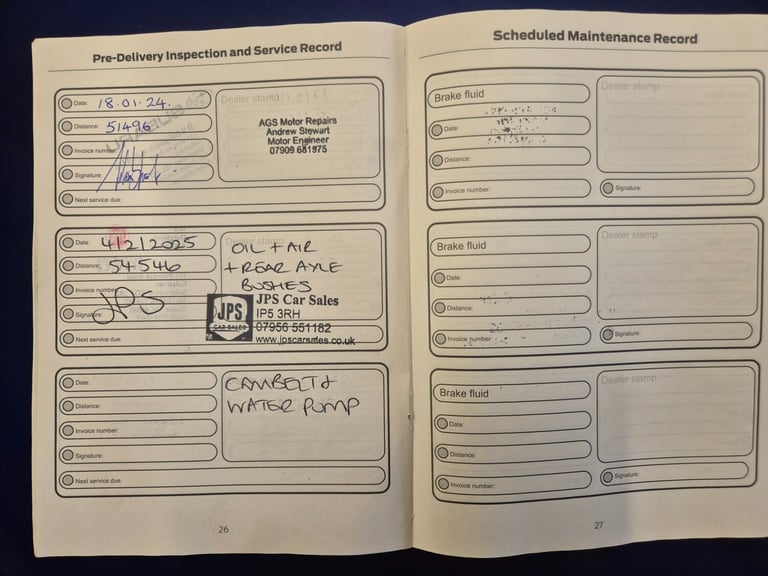 Pre-Delivery Inspection and Service Record
Date: 18.01.24.
Dealer stamp
Distance: 51496
Invoice number:
Signature:
Next service due:
AGS Motor Repairs
Andrew Stewart
Motor Engineer
07909 681975
Date: 4/2/2025
Dealer stamp
Distance: 54546
Invoice number:
Signature: JPS
Next service due:
OIL + AIR
+ REAR AXLE
BUSHES
JPS
CAR SALES
JPS Car Sales
IP5 3RH
07956 551182
www.jpscarsales.co.uk
Date:
Distance:
Invoice number:
Signature:
Next service due:
CAMBELT &
WATER PUMP
26
Scheduled Maintenance Record
Brake fluid
Dealer stamp
Date:
Distance:
Invoice number:
Signature:
Brake fluid
Dealer stamp
Date:
Distance:
Invoice number:
Signature:
Brake fluid
Dealer stamp
Date:
Distance:
Invoice number:
Signature:
27